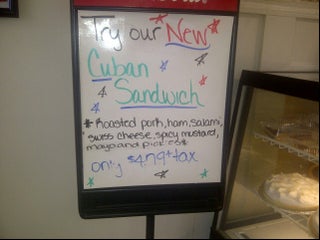 Try our New
Cuban
Sandwich
* Roasted pork, ham, salami,
swiss cheese, spicy mustard,
mayo and pickles
only $4.79+tax